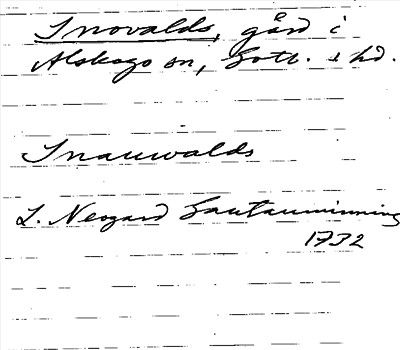 Snovalds, gård i
Alskogs sn, Gotl. s hd.
Snauwalds
L. Neogard Gautauminning
1732